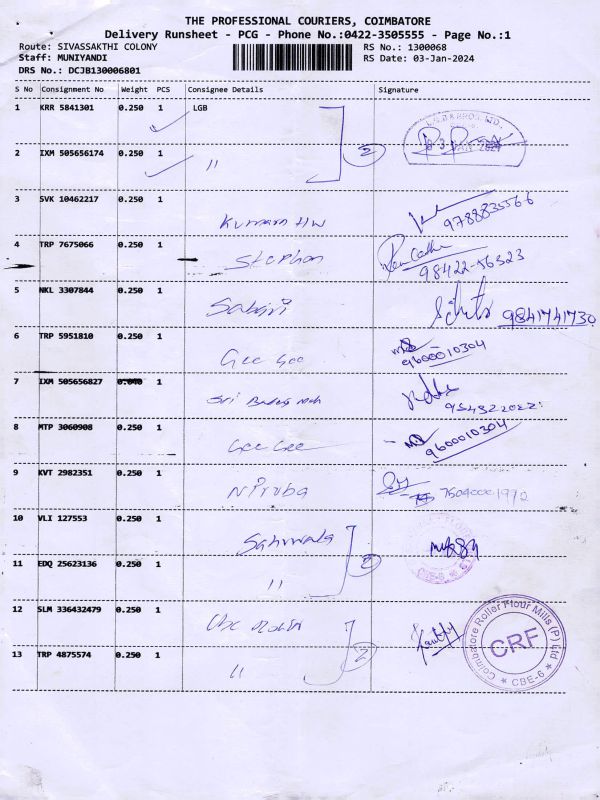 THE PROFESSIONAL COURIERS, COIMBATORE
Delivery Runsheet - PCG - Phone No.:0422-3505555 - Page No.:1
Route: SIVASSAKTHI COLONY RS No.: 1300068
Staff: MUNIYANDI RS Date: 03-Jan-2024
DRS No.: DCJB130006801
S No Consignment No Weight PCS Consignee Details Signature
1 KRR 5841301 0.250 1 LGB
2 IXM 505656174 0.250 1 " 2
3 SVK 10462217 0.250 1 Kumaran HW 9788835566
4 TRP 7675066 0.250 1 Stephan 98422-56323
5 NKL 3307844 0.250 1 Sabari 9841741730
6 TRP 5951810 0.250 1 Gee Gee 9600010304
7 IXM 505656827 0.040 1 Sri
8 MTP 3060908 0.250 1 Gee Gee 9600010304
9 KVT 2982351 0.250 1 Niruba
10 VLI 127553 0.250 1
11 EDQ 25623136 0.250 1 "
12 SLM 336432479 0.250 1
13 TRP 4875574 0.250 1 "
Coimbatore Roller Flour Mills (P) Ltd
CRF
CBE-6